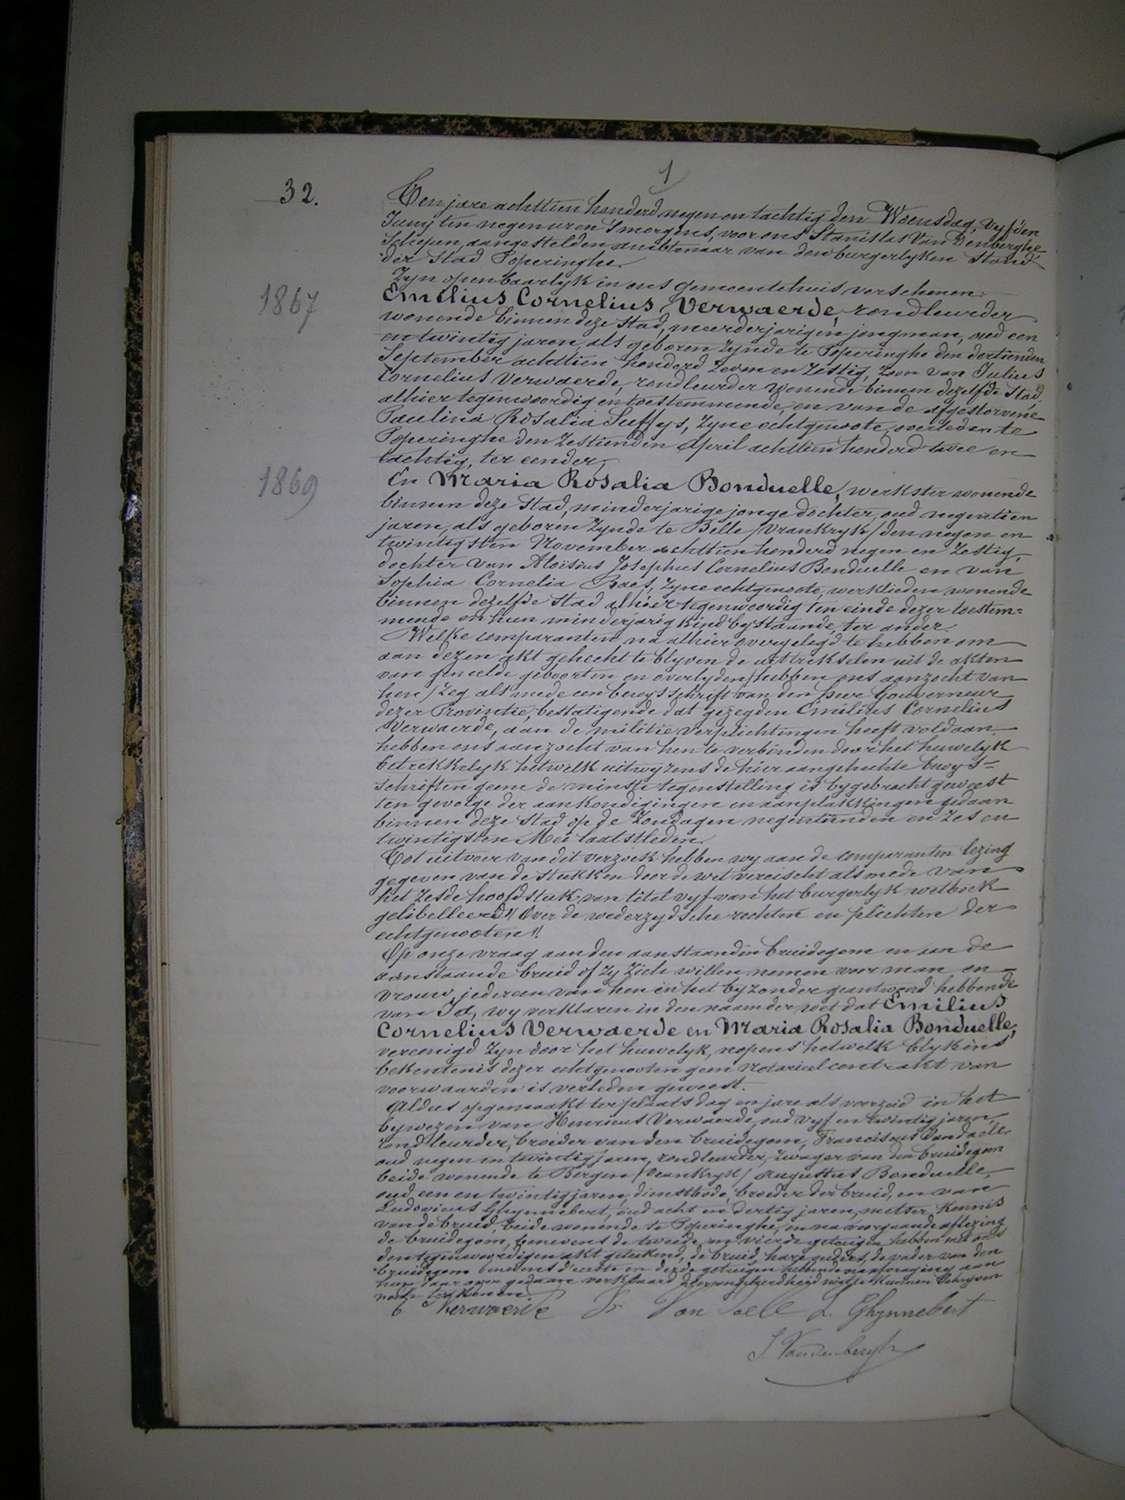 1
32.
Ten jare achttien honderd negen en tachtig den Woensdag, vyfden
Juny ten negen uren 's morgens, voor ons Stanislas Van Denberghe
Schepen, aangestelden ambtenaar van den burgerlyken stand
der Stad Poperinghe.
Zyn openbaarlyk in ons gemeentehuis verschenen:
1867
Emilius Cornelius Verwaerde, rondleurder
wonende binnen deze stad, meerderjarigen jongman, oud een
en twintig jaren, als geboren zynde te Poperinghe den dertienden
September achttien honderd zeven en zestig, zoon van Julius
Cornelius Verwaerde, rondleurder wonende binnen dezelfde stad
alhier tegenwoordig en toestemmende, en van de afgestorvene
Paulina Rosalia Suffys, zyne echtgenoote, overleden te
Poperinghe den zestienden April achttien honderd twee en
tachtig, ter eender,
1869
En Maria Rosalia Bonduelle, werkster wonende
binnen deze stad, minderjarige jonge dochter, oud negentien
jaren, als geboren zynde te Belle /Vrankryk/ den negen en
twintigsten November achttien honderd negen en zestig,
dochter van Aloisius Josephus Cornelius Bonduelle en van
Sophia Cornelia Baes, zyne echtgenoote, werklieden wonende
binnen dezelfde stad alhier tegenwoordig ten einde dezer toestem=
mende en hun minderjarig kind bystaande, ter ander.
Welke comparanten na alhier overgelegd te hebben om
aan dezen akt gehecht te blyven de uittrekselen uit de akten
van gemelde geboorten en overlyden /hebben ons aanzocht van
hen/ zeg als mede een bewysschrift van den heer Gouverneur
dezer Provintie, bestatigende dat gezegden Emilius Cornelius
Verwaerde, aan de militie verplichtingen heeft voldaan
hebben ons aanzocht van hen te verbinden door het huwelyk
betrekkelyk hetwelk uitwyzens de hier aangehechte bewys=
schriften geene de minste tegenstelling is bygebracht geweest
ten gevolge der aankondigingen en aanplakkingen gedaan
binnen deze stad op de Zondagen negentienden en zes en
twintigsten Mei laatstleden.
Tot uitvoer van dit verzoek hebben wy aan de comparanten lezing
gegeven van de stukken door de wet vereischt alsmede van
het zesde hoofdstuk van titel vyf van het burgerlyk wetboek
gelibelleerd "Over de wederzydsche rechten en plichten der
echtgenooten".
Op onze vraag aan den aanstaanden bruidegom en aan de
aanstaande bruid of zy zich willen nemen voor man en
vrouw, jedereen van hen in het byzonder geantwoord hebbende
van Ja, wy verklaren in den naam der wet dat Emilius
Cornelius Verwaerde en Maria Rosalia Bonduelle,
vereenigd zyn door het huwelyk, nopens hetwelk blykens
bekentenis dezer echtgenooten geen notarieel contrakt van
voorwaarden is verleden geweest.
Aldus opgemaakt ter plaats dag en jare als voorzeid in het
bywezen van Henricus Verwaerde, oud vyf en twintig jaren,
rondleurder, broeder van den bruidegom, Franciscus Vandaele
oud negen en twintig jaren, rondleurder, zwager van den bruidegom
beide wonende te Bergen /Vrankryk/ Augustus Bonduelle,
oud een en twintig jaren, dienstbode, broeder der bruid, en van
Ludovicus Ghynnebert, oud acht en dertig jaren, metser, kennis
van de bruid, beide wonende te Poperinghe, en na voorgaande aflezing
de bruidegom, benevens de tweede en vierde getuigen hebben met ons
den tegenwoordigen akt geteekend, de bruid, hare ouders, de vader van den
bruidegom benevens de eerste en derde getuigen
Verwaerde Van daele L. Ghynnebert
S. Vandenberghe